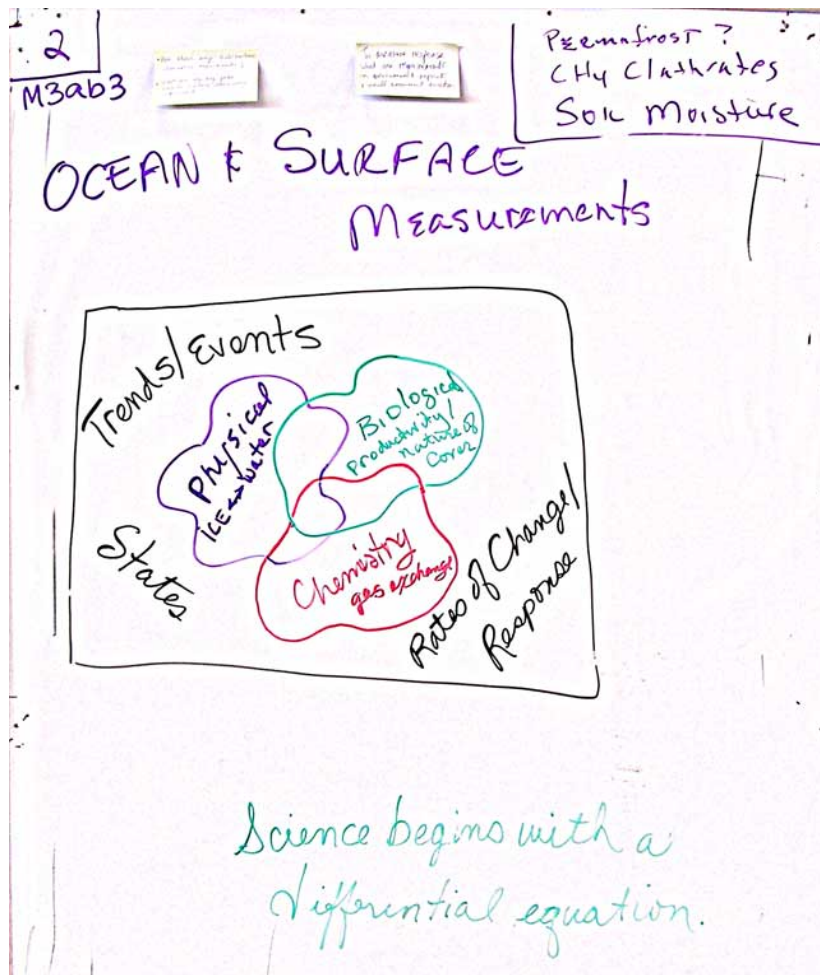 2
M3ab3
Permafrost?
CH4 Clathrates
Soil Moisture
OCEAN & SURFACE
Measurements
Trends/Events
Physical
ICE↔water
Biological
Productivity/
nature of
Cover
States
Chemistry
gas exchange
Rates of Change/
Response
Science begins with a
differential equation.